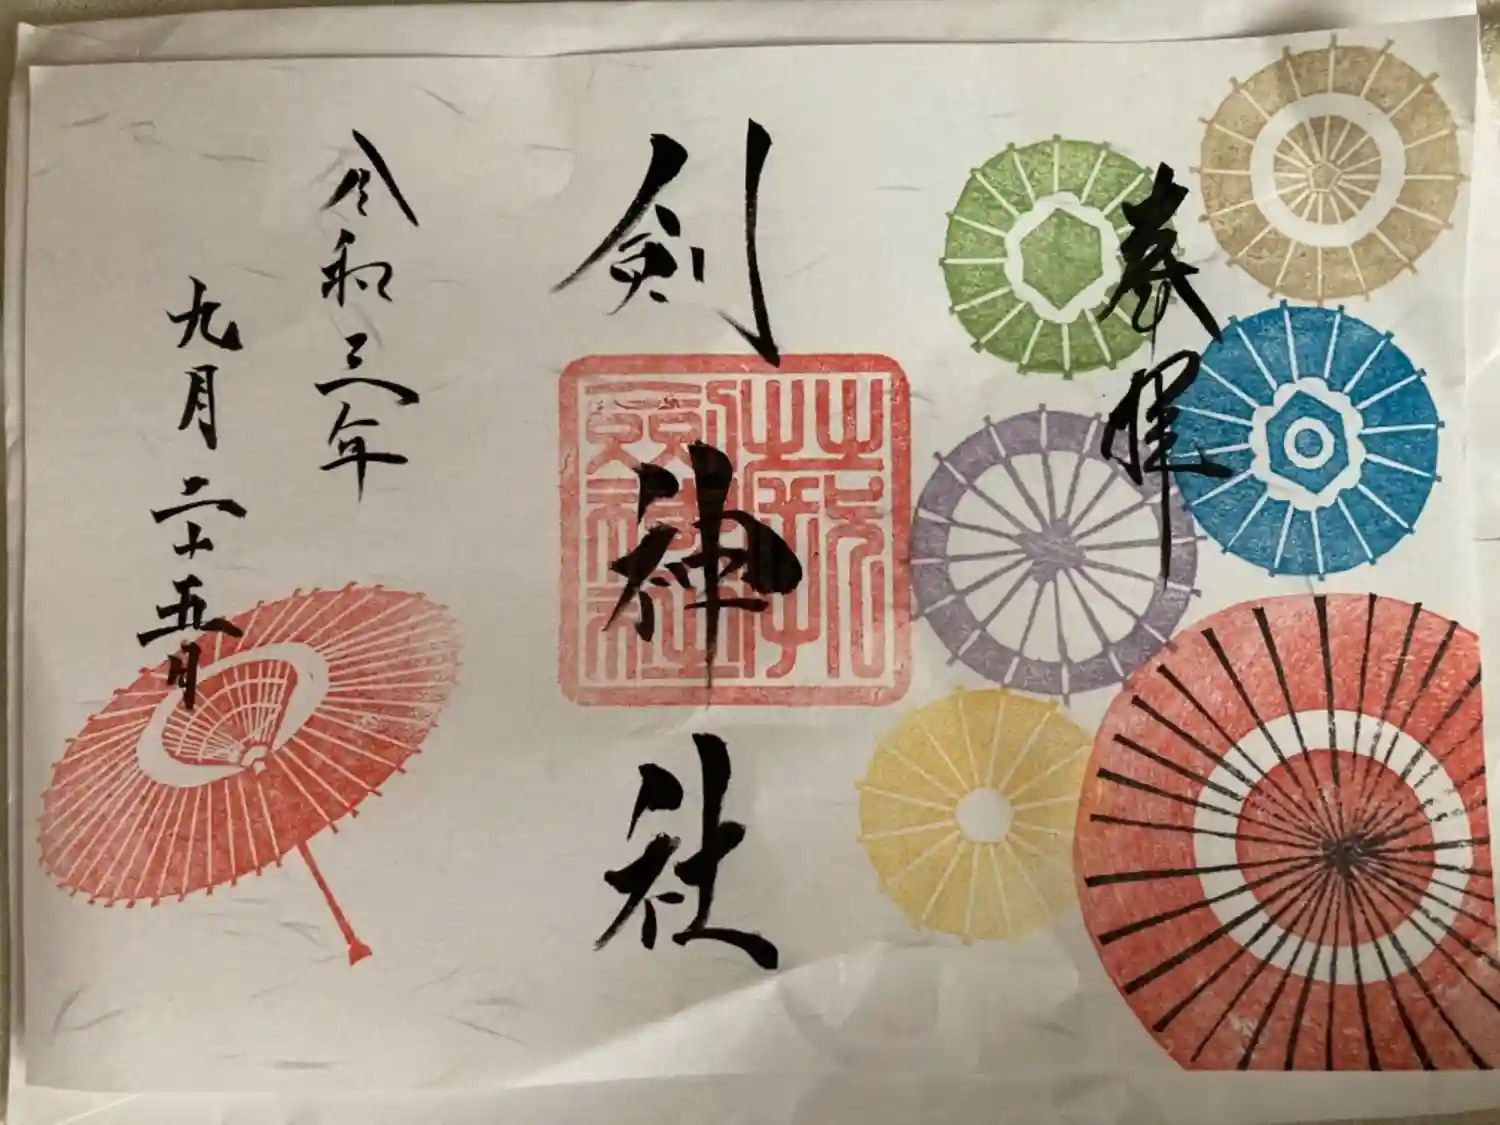 奉拝
剣神社
令和三年
九月二十五日